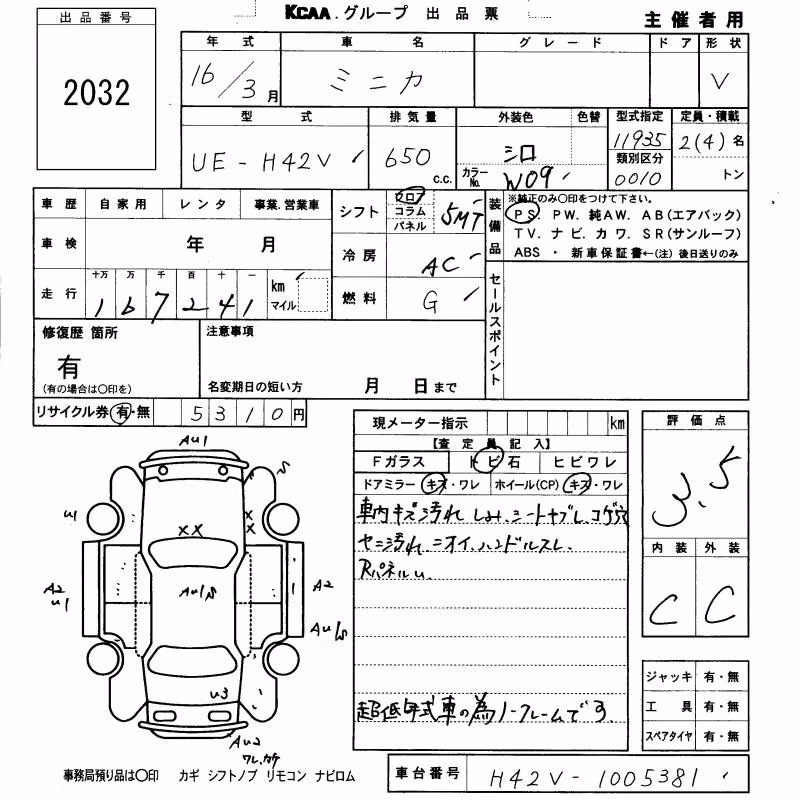 KCAA.グループ 出品票
主催者用
出品番号
2032
年式 車名 グレード ドア 形状
16/3月 ミニカ V
型式 排気量 外装色 色替 型式指定 定員・積載
UE-H42V 650 c.c. シロ 11935 2(4)名
カラーNo. W09 類別区分 0010 トン
車歴 自家用 レンタ 事業.営業車
車検 年 月
走行 十万 万 千 百 十 一
167241 km マイル
シフト フロア コラム パネル 5MT
冷房 AC
燃料 G
装備品
※純正のみ○印をつけて下さい。
PS. PW. 純AW. AB(エアバック)
TV. ナビ. カワ. SR(サンルーフ)
ABS ・ 新車保証書←(注)後日送りのみ
セールスポイント
修復歴 箇所
有
(有の場合は○印を)
注意事項
名変期日の短い方 月 日まで
リサイクル券 有・無 5310円
現メーター指示 km
【査定員記入】
Fガラス トビ石 ヒビワレ
ドアミラー キズ・ワレ ホイール(CP) キズ・ワレ
車内キズ汚れ シミ、シートヤブレ、コゲ穴
ヤニ汚れ、ニオイ、ハンドルスレ、
Rパネルu、
超低年式車の為ノークレームです。
評価点
3.5
内装 外装
C C
ジャッキ 有・無
工具 有・無
スペアタイヤ 有・無
Au1
S
u1
XX
X
X
A2
u1
Au1S
A2
Au1S
u3
Au2
ワレ,カケ
事務局預り品は○印 カギ シフトノブ リモコン ナビロム
車台番号 H42V-1005381